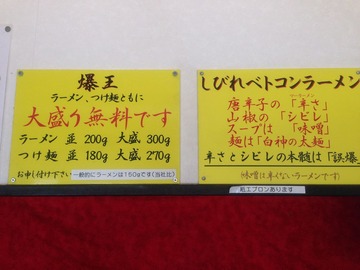 爆王
ラーメン、つけ麺ともに
大盛り無料です
ラーメン 並 200g 大盛 300g
つけ麺 並 180g 大盛 270g
お申し付け下さい
一般的にラーメンは150gです(当社比)
しびれベトコンラーメン
マーラーメン
唐辛子の「辛さ」
山椒の「シビレ」
スープは「味噌」
麺は「白神の太麺」
辛さとシビレの本髄は「誤爆」
(味噌は辛くないラーメンです)
紙エプロンあります